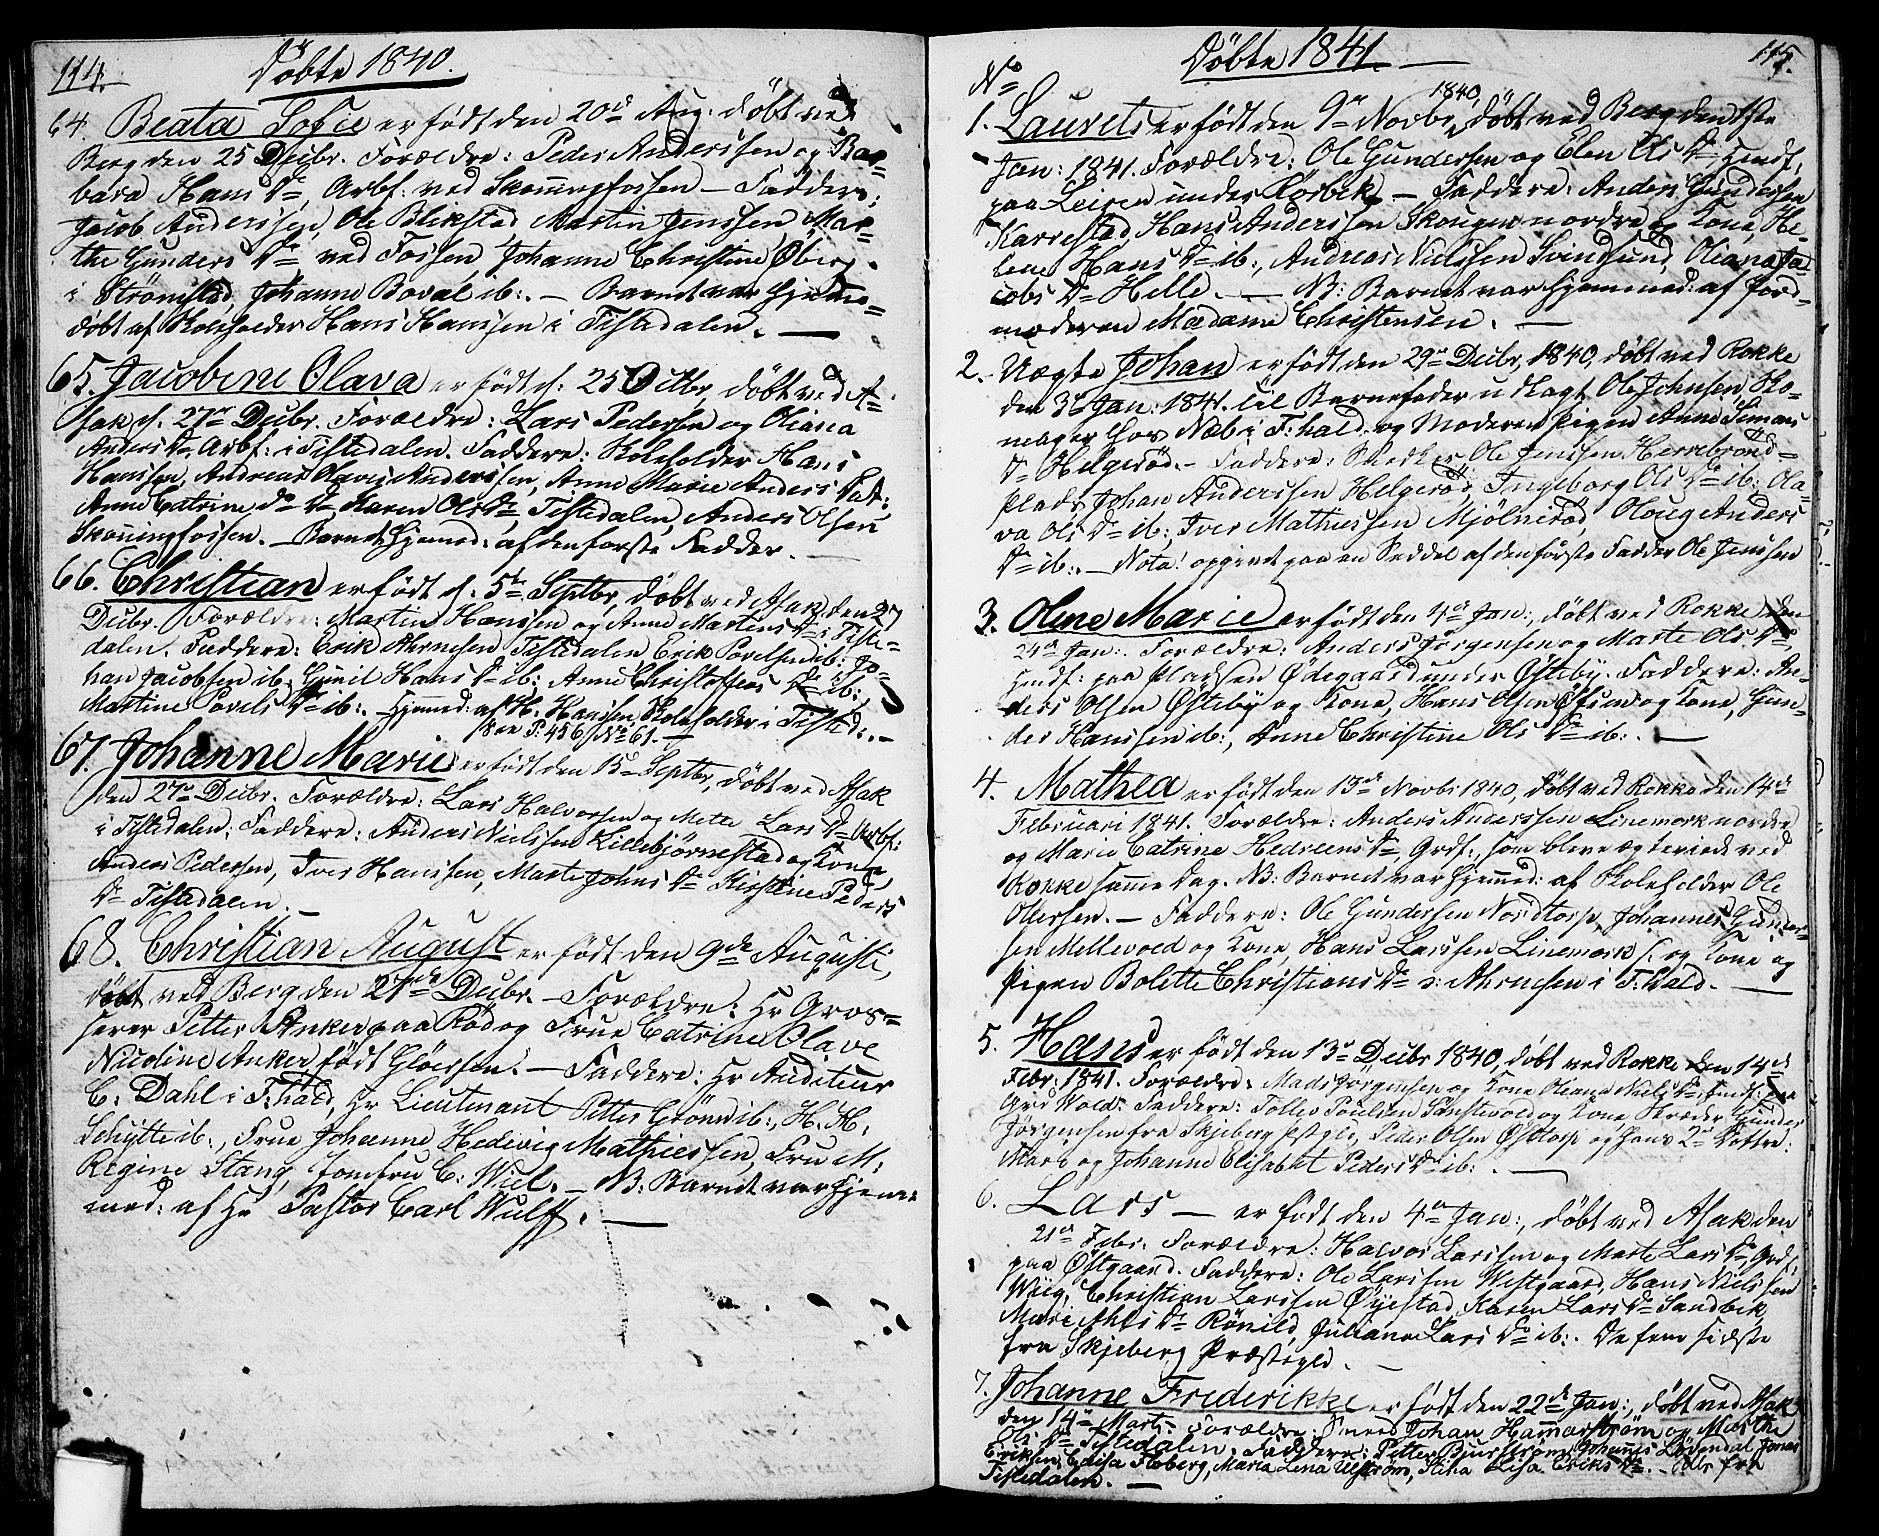 114.
Döbte 1840.
64. Beata Sofie er født den 20de Aug. döbt ved
Berg den 25 Decbr. Forældre: Peder Anderssen og Bar=
bara Hans Dr, Arbf: ved Skonningfossen — Faddere:
Jacob Anderssen, Ole Blikstad Martin Jenssen, Mar=
the Gunders Dr ved Fossen Johanne Christine Öberg
i Strömstad, Johanne Boval ib:. — Barnet var hjemme=
döbt af Skoleholder Hans Hanssen i Tistedalen. —
65. Jacobine Olava er født d: 25 Octbr, döbt ved A=
sak d. 27de Decbr. Forældre: Lars Pederssen og Oliana
Anders Dr, Arbf: i Tistedalen. Faddere: Skoleholder Hans
Hanssen, Andreas Olavs Anderssen, Anne Marie Anders Dat:
Anne Catrine do Dr Karen Ols Dr, Tistedalen, Anders Olsen
Skonningfossen. — Barnet hjemmed: af den første Fadder.
66. Christian er født d: 5te Septbr, döbt ved Asak den 27
Decbr. Forældre: Martin Hanssen og Anne Martens Dr i Tiste=
dalen. Faddere: Erik Ahrnesen Tistedalen Erik Povelsen ib: Jo=
han Jacobsen ib. Gunil Hans Dr ib: Anne Christoffers Dr ib:,
Martine Povels Dr ib:. — Hjemmed: af H. Hanssen Skoleholder i Tisted:. —
See P. 456 No 61. —
67. Johanne Marie er født den 15de Septbr, döbt ved Asak
den 27de Decbr. Forældre: Lars Halvorsen og Mette Lars Dr Arbf:
i Tistedalen; Faddere: Anders Nielssen Lillebjørnestad og Kone,
Anders Pederssen, Iver Hanssen, Marte Johns Dr Kirstine Peders
Dr Tistedalen. —
68. Christian August er født den 9de Augusti,
döbt ved Berg den 27de Decbr. — Forældre: Hr Gros=
serer Petter Anker paa Röd og Frue Catrine Olave
Nicoline Anker født Glöersen. — Faddere: Hr Auditeur
C: Dahl i F:hald, Hr Lieutenant Petter Grönn ib:, H. H.
Schytte ib:, Frue Johanne Hedevig Mathiessen, Fru M:
Regine Stang, Jomfru C. Wiel. — NB: Barnet var hjem=
med: af Hr Pastor Carl Wulff. —
Döbte 1841. —
115.
No
1. Laurets er født den 9de Novbr 1840, döbt ved Berg den 1ste
Jan: 1841. Forældre: Ole Gunderssen og Elen Ols Dr Huusf:
paa Leiren under Korsbek. — Faddere: Anders Gunderssen
Karrestad, Hans Anderssen Skougen nordre og Kone, He=
lene Hans Dr ib:, Andreas Nielssen Svindsund, Oliana Ja=
cobs Dr Helle. — NB: Barnet var hjemmed: af Jord=
moderen Madame Christensen. —
2. Uægte Johan er født den 29de Decbr, 1840, döbt ved Rokke
den 3de Jan: 1841. Til Barnefader udlagt Ole Johnsen, Sko=
mager hos Næb i F:hald og Moderen Pigen Anne Simons
Dr Helgeröd. — Faddere: Snedker Ole Jenssen Herrebrönd=
plads, Johan Anderssen Helgeröd, Ingeborg Ols Dr ib: Ola=
va Ols Dr ib:, Iver Mathiessen Mjölneröd, Oloug Anders
Dr ib:. — Nota! opgivet paa en Seddel af den første Fadder Ole Jenssen
3. Olene Marie er født den 4de Jan:, döbt ved Rokke den
24de Jan:. Forældre: Anders Jörgensen og Marte Ols Dr,
Huusf: paa Pladsen Ödegaard under Östeby. Faddere: An=
ders Olsen Östeby og Kone, Hans Olsen og Kone, Gun=
der Hanssen ib:, Anne Christine Ols Dr ib:. —
4. Mathea er født den 13de Novbr 1840, döbt ved Rokke den 14de
Februari 1841. Forældre: Anders Anderssen Linemork nordre
og Marie Catrine Hedreens Dr, Grdf:, som bleve ægteviede ved
Rokke samme Dag. NB: Barnet var hjemmed: af Skoleholder Ole
Olerssen. — Faddere: Ole Gunderssen Nordtorp, Johannes Gunders=
sen Mellevold og Kone, Hans Larssen Linemork s. og Kone og
Pigen Bolette Christians Dr o: Ahrnesen i F:hald. —
5. Hans er født den 13de Decbr 1840, döbt ved Rokke den 14de
Febr: 1841. Forældre: Mads Jörgensen og Kone Oliana Niels Dr, Huusf: paa
Grid Wold. Faddere: Tollev Poulsen Tanstevold og Kone, Skræder Gunder
Jörgensen fra Skjeberg Pstgld, Peder Olsen Östtorp og hans 2de Döttre:
Mari og Johanne Elisabet Peders Dr ib:. —
6. Lars — er født den 4de Jan:, döbt ved Asak den
21de Febr. Forældre: Halvor Larssen og Marte Lars Dr Grdf:
paa Östgaard. Faddere: Ole Larssen Westgaard, Hans Nielssen
Wiig, Christian Larssen Öyestad, Karen Lars Dr Sandbek,
Mari Nils Dr Rönild, Juliana Lars Dr ib:. De fem sidste
fra Skjeberg Præstegld. —
7. Johanne Frederikke er født den 22de Jan:, döbt ved Asak
den 14de Mart. Forældre: Smed Johan Hammarström og Marthe
Ols Dr Tistedalen. Faddere: Petter Buurström, Johannes Lövendal, Jonas
Eriksen, Edisa Floberg, Maria Lena Ulström, Stina Lisa Eriks Dr. — Alle fra
Tistedalen. —